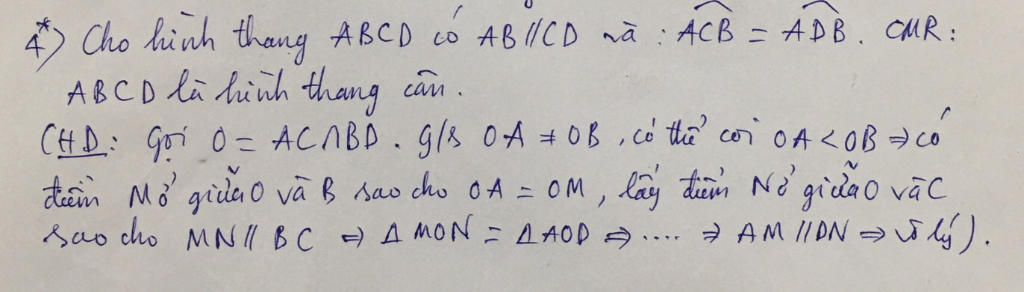 4*) Cho hình thang ABCD có AB//CD và : ACB = ADB. CMR:
ABCD là hình thang cân.
(HD: Gọi O = AC∩BD. g/s OA ≠ OB, có thể coi OA < OB ⇒ có
điểm M ở giữa O và B sao cho OA = OM, lấy điểm N ở giữa O và C
sao cho MN // BC ⇒ Δ MON = Δ AOD ⇒ .... ⇒ AM // DN ⇒ vô lý).